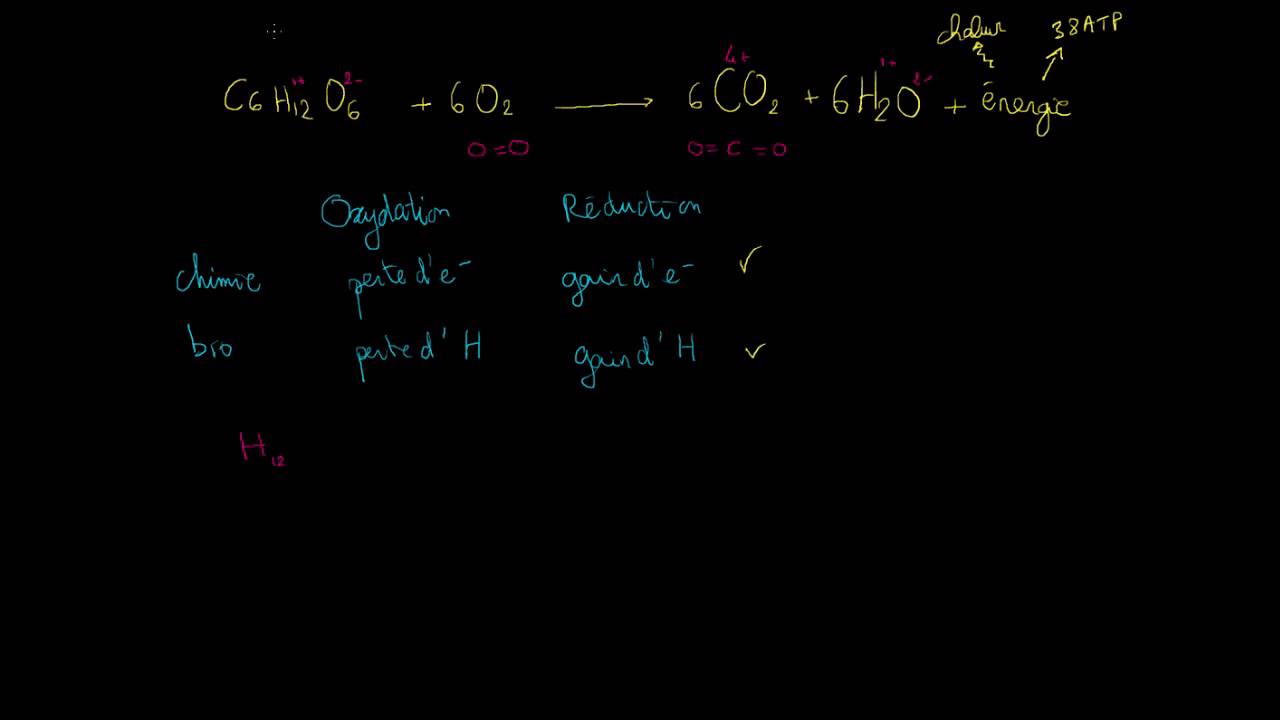 chaleur 38ATP
1+ 2- 4+ 1+ 2-
C6H12O6 + 6O2 → 6CO2 + 6H2O + énergie
O=O O=C=O
Oxydation Réduction
chimie perte d'e- gain d'e- ✓
bio perte d'H gain d'H ✓
H12